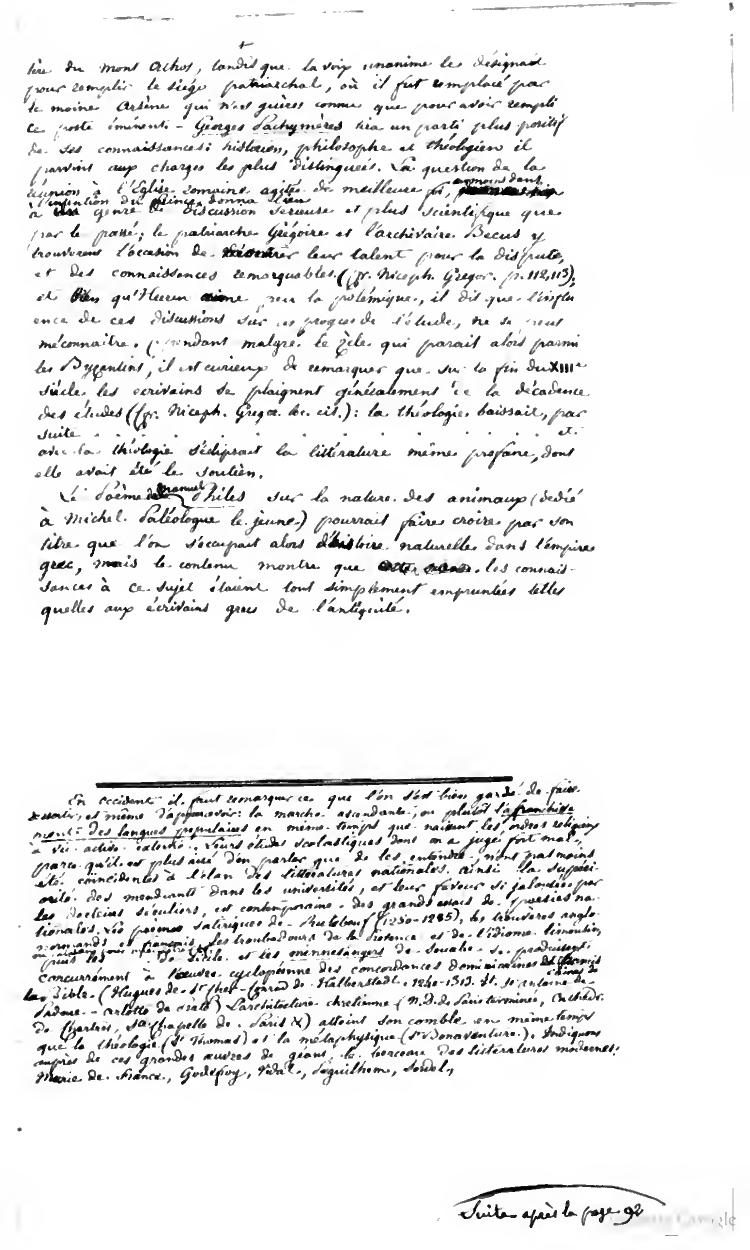 tère du mont Athos, tandis que la voix unanime le désignait
pour remplir le siège patriarchal, où il fut remplacé par
le moine Arsène qui n'est guères connu que pour avoir rempli
ce poste éminent - Georges Pachymères tira un parti plus positif
de ses connaissances: historien, philosophe et théologien il
parvint aux charges les plus distinguées. La question de la
réunion à l'Eglise romaine agitée de meilleure foi, au moins dans
l'intention du Prince, donna lieu
à un genre de discussion sérieuse et plus scientifique que
par le passé; le patriarche Grégoire et l'archivaire Beccus y
trouvèrent l'occasion de montrer leur talent pour la dispute,
et des connaissances remarquables. (fr. Niceph. Gregor. p. 112, 113),
et bien qu'Heeren aime peu la polémique, il dit que l'influ
ence de ces discussions sur les progrès de l'étude, ne se peut
méconnaitre. Cependant malgré le zèle qui parait alors parmi
les Byzantins, il est curieux de remarquer que sur la fin du XIIIe
siècle les écrivains se plaignent généralement de la décadence
des études (fr. Niceph. Gregor. loc. cit.): la théologie baissait, par
suite . . . . . . . . . . et
avec la théologie s'éclipsait la littérature même profane, dont
elle avait été le soutien.
Le Poème de Manuel Philes sur la nature des animaux (dédié
à Michel Paléologue le jeune) pourrait faire croire par son
titre que l'on s'occupait alors d'histoire naturelle dans l'empire
grec, mais le contenu montre que les connais-
sances à ce sujet étaient tout simplement empruntées telles
quelles aux écrivains grecs de l'antiquité.
En occident il faut remarquer ce que l'on s'est bien gardé de faire
ressortir, et même d'apercevoir: la marche ascendante, ou plutôt l'affranchisse
ment des langues populaires en même temps que naissent les ordres religieux
à vie active. Leurs études scolastiques dont on a jugé fort mal,
parce qu'il est plus aisé d'en parler que de les entendre, n'ont pas moins
été coïncidentes à l'élan des littératures nationales. Ainsi la supéri-
orité des mendiants dans les universités, et leur faveur si jalousée par
les docteurs séculiers, est contemporaine des grands essais de poésies na-
tionales. Les poèmes satiriques de Rutebeuf (1230-1285), les trouvères anglo
normands et français, les troubadours de la Provence et de l'idiome limousin
puis les de Sicile et les minnesangers de Souabe se produisent
concurremment à l'oeuvre cyclopéenne des concordances dominicaines
la Bible. (Hugues de St Cher - Conrad de Halberstadt. 1240-1313. St. Antoine de
Padoue - Arlotto de Prato) L'architecture chrétienne (N.D. de Paris terminée, Cathédr.
de Chartres, Ste Chapelle de Paris &) atteint son comble en même temps
que la théologie (St Thomas) et la métaphysique (St Bonaventure). Indiquons
auprès de ces grandes oeuvres de géans, le berceau des littératures modernes.
Marie de France, Godefroy, Vidal, Sordel,
Suite après la page 92